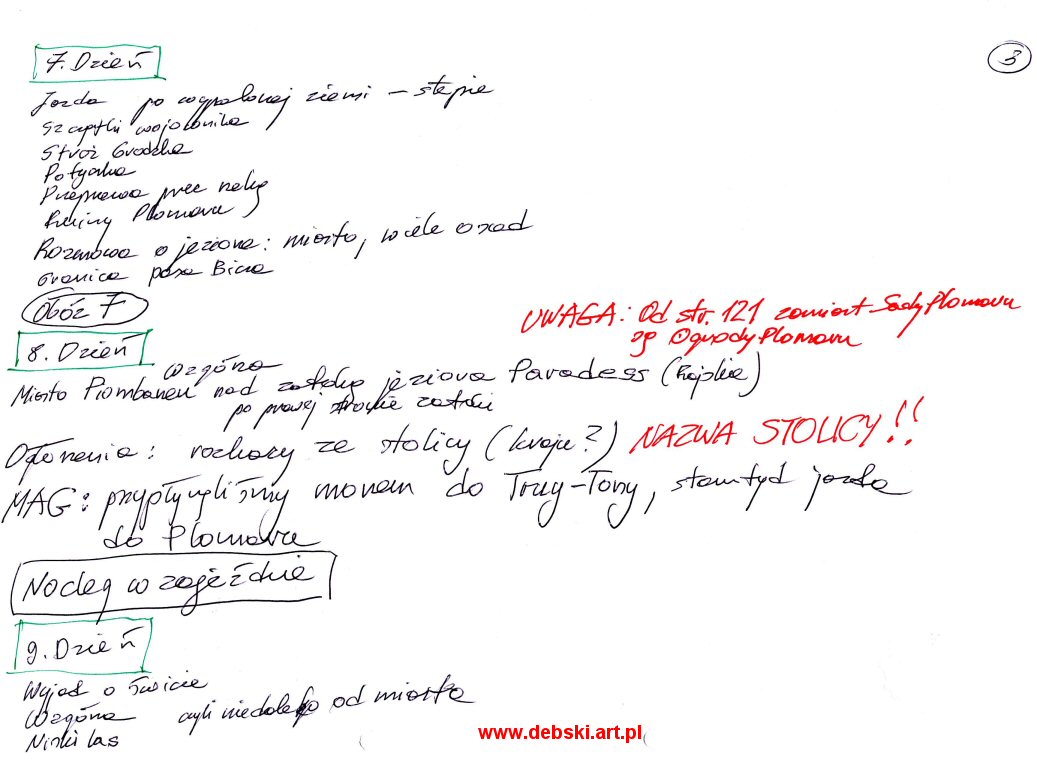 3
7. Dzień
Jazda po wypalonej ziemi – stepie
Szczątki wojownika
Stróż Grodzka
Potyczka
Przeprawa przez rzekę
Ruiny Plomaru
Rozmowa o jeziorze: miasto, wiele osad
Granica pasa
Obóz 7
UWAGA: Od str. 121 zamiast Sady Plomaru
są Ogrody Plomaru
8. Dzień
Wzgórza
Miasto nad zatoką jeziora Paradess (Rajskie)
po prawej stronie zatoki
Ogłoszenia: rozkazy ze stolicy (kraju?) NAZWA STOLICY!!
MAG: przypłynęliśmy morzem do Trzy-Tony, stamtąd jazda
do Plomaru
Nocleg w zajeździe
9. Dzień
Wyjazd o świcie
Wzgórza czyli niedaleko od miasta
Niski las
www.debski.art.pl